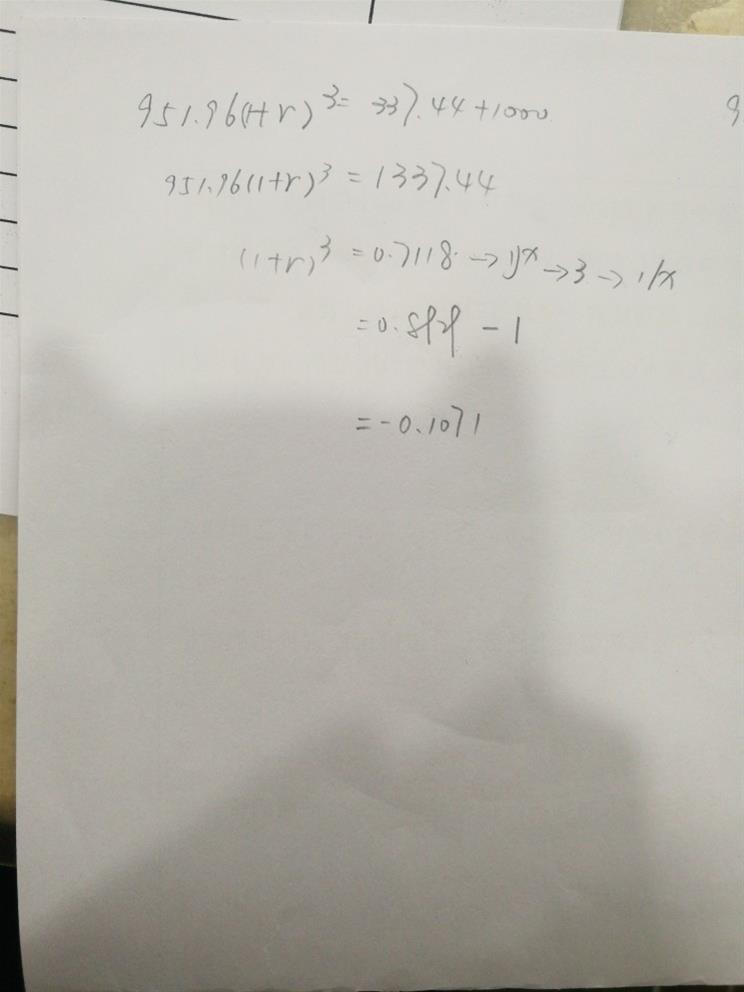 951.96(1+r)³= 337.44+1000
9
951.96(1+r)³ = 1337.44
(1+r)³ = 0.7118 → y^x → 3 → 1/x
= 0.8929 - 1
= -0.1071